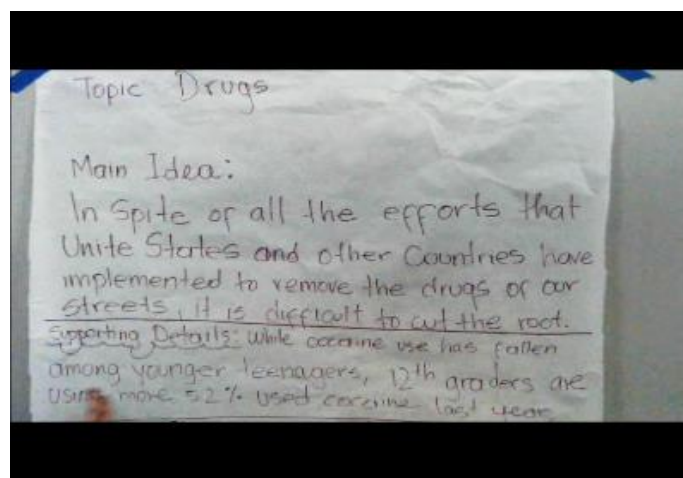 Topic Drugs
Main Idea:
In Spite of all the efforts that
Unite States and other Countries have
implemented to remove the drugs of our
streets, it is difficult to cut the root.
Supporting Details: While cocaine use has fallen
among younger teenagers, 12th graders are
using more 52% used cocaine last year